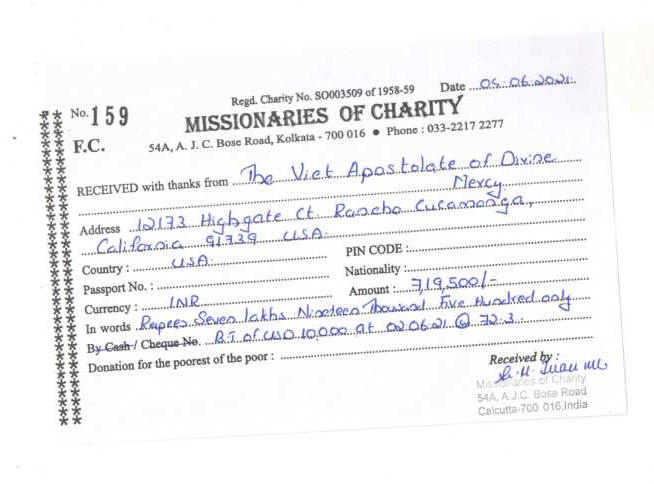 Regd. Charity No. SO003509 of 1958-59 Date 05.06.2021.
No. 159 MISSIONARIES OF CHARITY
F.C. 54A, A. J. C. Bose Road, Kolkata - 700 016 • Phone : 033-2217 2277
RECEIVED with thanks from The Viet Apostolate of Divine
Mercy.
Address 12173 Highgate Ct. Rancho Cucamonga,
California 91739 USA.
Country : USA. PIN CODE :
Passport No. : Nationality :
Currency : INR Amount : 719,500/-
In words Rupees Seven lakhs Nineteen Thousand Five Hundred only
By Cash / Cheque No. B.T of USD 10,000 at 02.06.21 @ 72.3
Donation for the poorest of the poor :
Received by :
Missionaries of Charity
54A, A.J.C. Bose Road
Calcutta-700 016,India